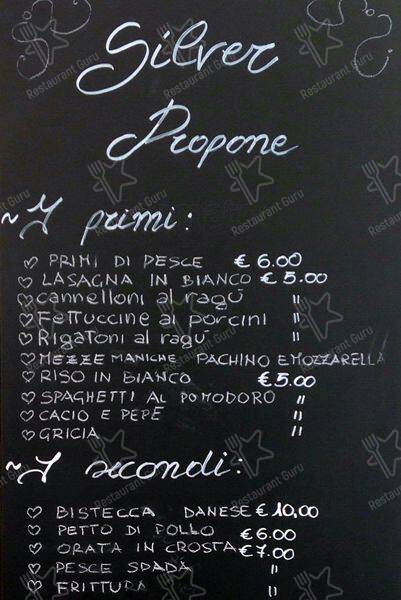 Silver
Propone
~I primi:
♡ PRIMI DI PESCE € 6.00
♡ LASAGNA IN BIANCO € 5.00
♡ cannelloni al ragú "
♡ Fettuccine ai porcini "
♡ Rigatoni al ragú "
♡ MEZZE MANICHE PACHINO E MOZZARELLA
♡ RISO IN BIANCO € 5.00
♡ SPAGHETTI AL POMODORO "
♡ CACIO E PEPE "
♡ GRICIA "
~I secondi:
♡ BISTECCA DANESE € 10,00
♡ PETTO DI POLLO € 6.00
♡ ORATA IN CROSTA € 7.00
♡ PESCE SPADA "
♡ FRITTURA "
Restaurant Guru